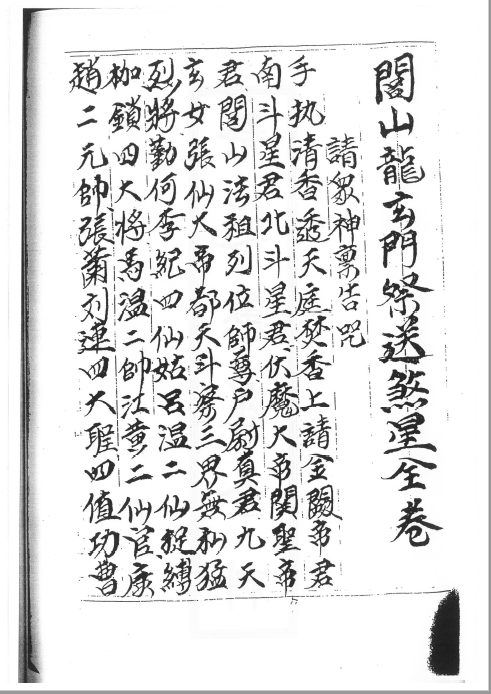 閭山龍玄門祭送煞星全卷
請眾神稟告咒
手执清香透天庭焚香上請金闕帝君
南斗星君北斗星君伏魔大帝関聖帝
君閭山法祖列位師尊尸尉真君九天
玄女張仙大帝都天斗察三界無私猛
烈將勤何李紀四仙姑呂温二仙捉縛
枷鎖四大将馬温二帥江黄二仙官康
趙二元帥張蕭刘連四大聖四值功曹